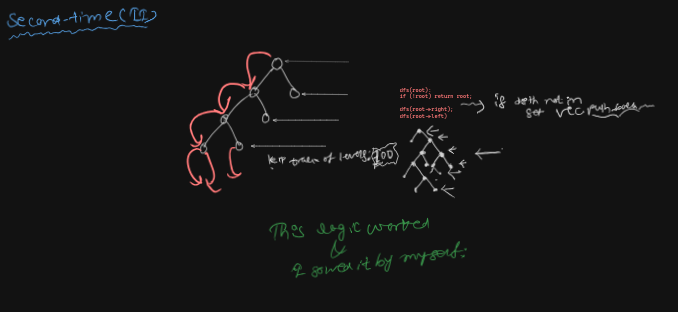 Second-time(II)
dfs(root);
if (!root) return root;
dfs(root->right);
dfs(root->left)
if depth not in
set vec push back
keep track of levels. 100
This logic worked
&
I solved it by myself.